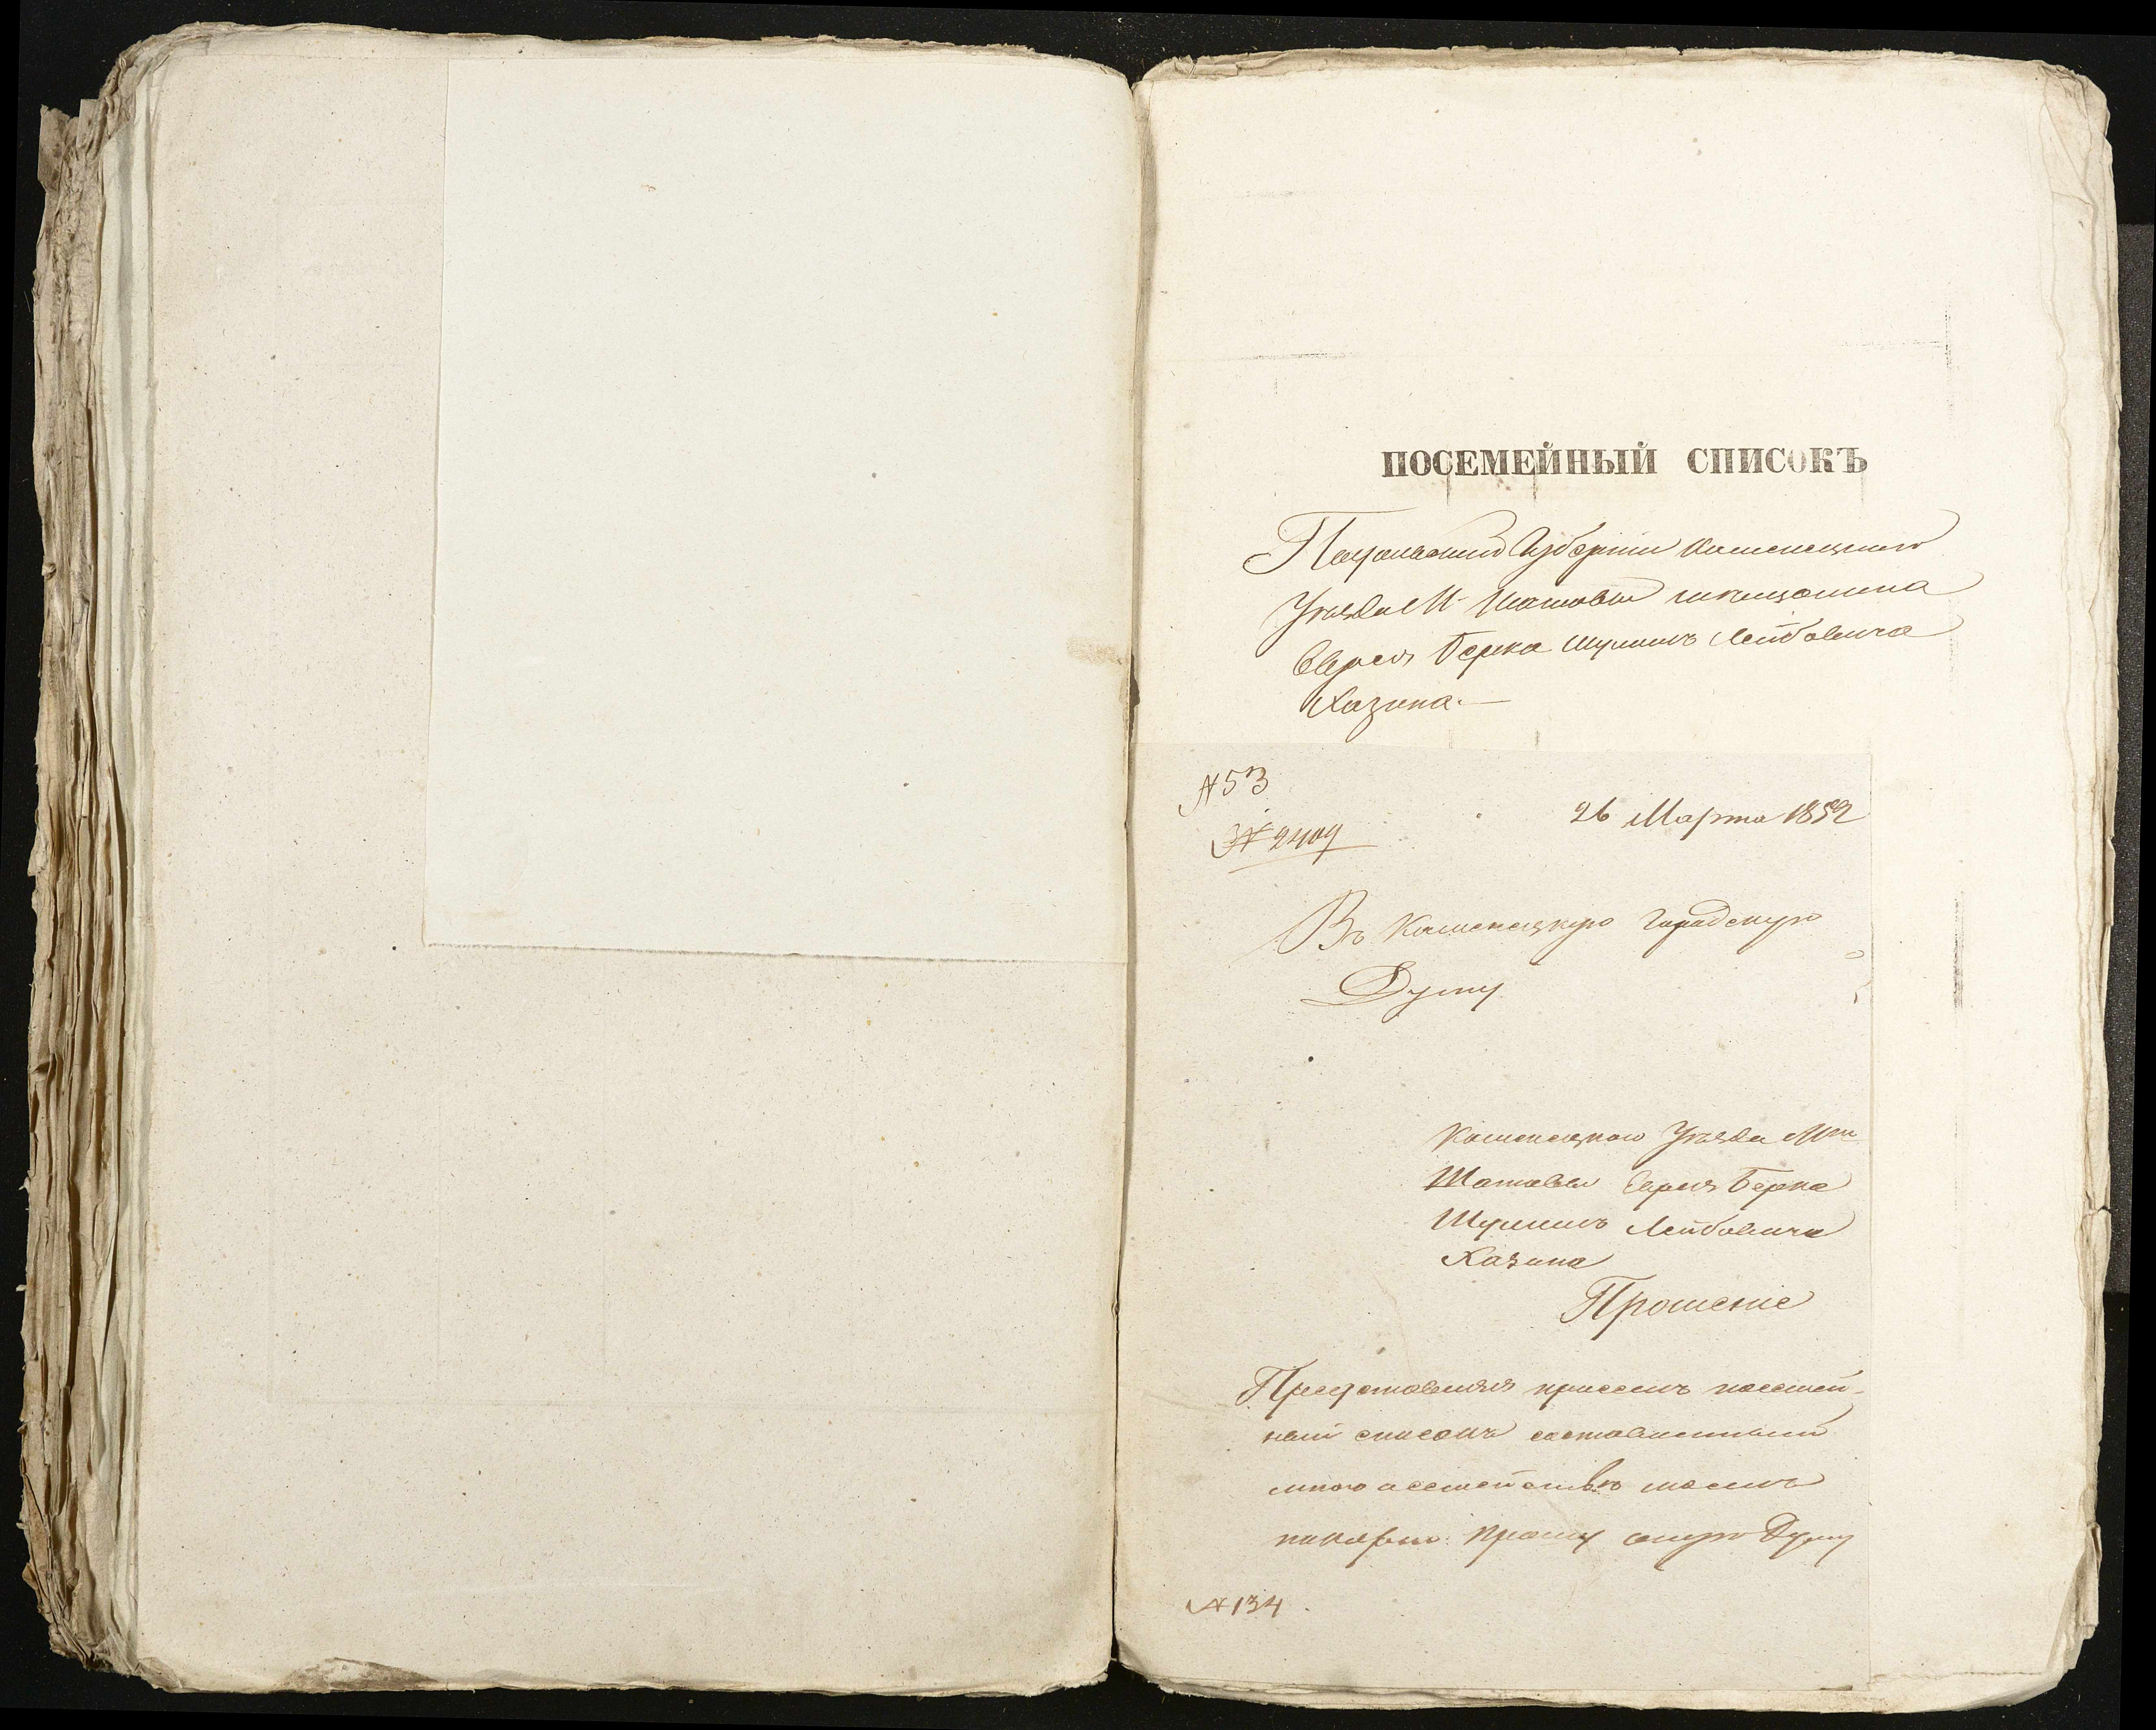 ПОСЕМЕЙНЫЙ СПИСОКЪ
Подольской Губерніи Каменецкаго
Уѣзда М. Шатавы мѣщанина
Еврея Берка Шулимъ Лейбовича
Хазина.—
№ 53
№ 2409
26 Марта 1852
Въ Каменецкую Градскую
Думу
Каменецкаго Уѣзда
Шатавы Еврея Берка
Шулимъ Лейбовича
Хазина
Прошеніе
Представляя присемъ посемей-
ный списокъ составленный
мною о семействѣ моемъ
покорно прошу оную Думу
№ 134